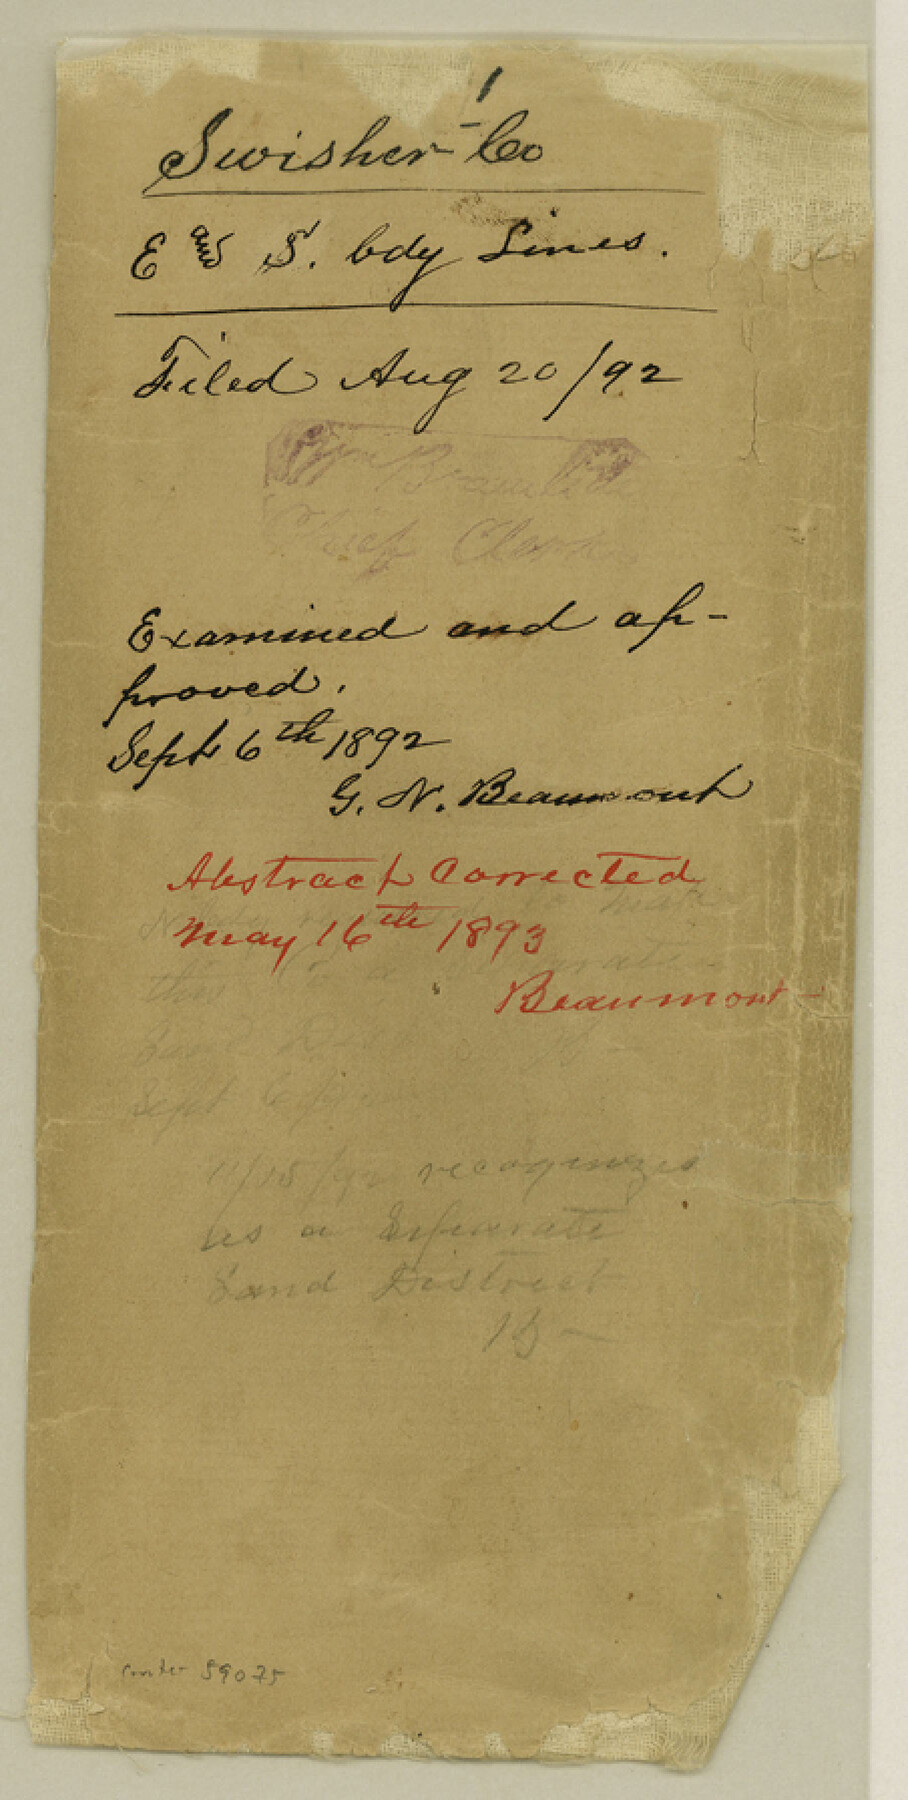 1
Swisher Co
E and S. bdy Lines.
Filed Aug 20/92
Chief Clerk
Examined and ap-
proved.
Sept 6th 1892
G. N. Beaumont
Abstract Corrected
May 16th 1893
Beaumont
this
Sept 6
recognizes
as a Seperate
Land District
B
counter 59075